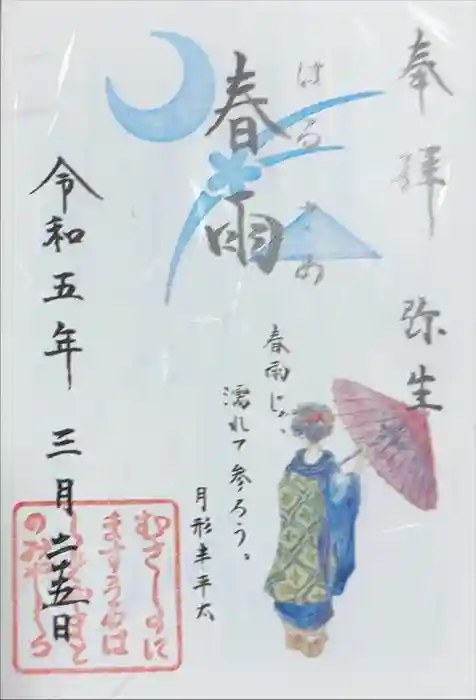 奉拝 弥生
はるさめ
春雨
春雨じゃ、
濡れて参ろう。
月形半平太
令和五年 三月二十五日
むさしのに
ますうるは
のおやしろ